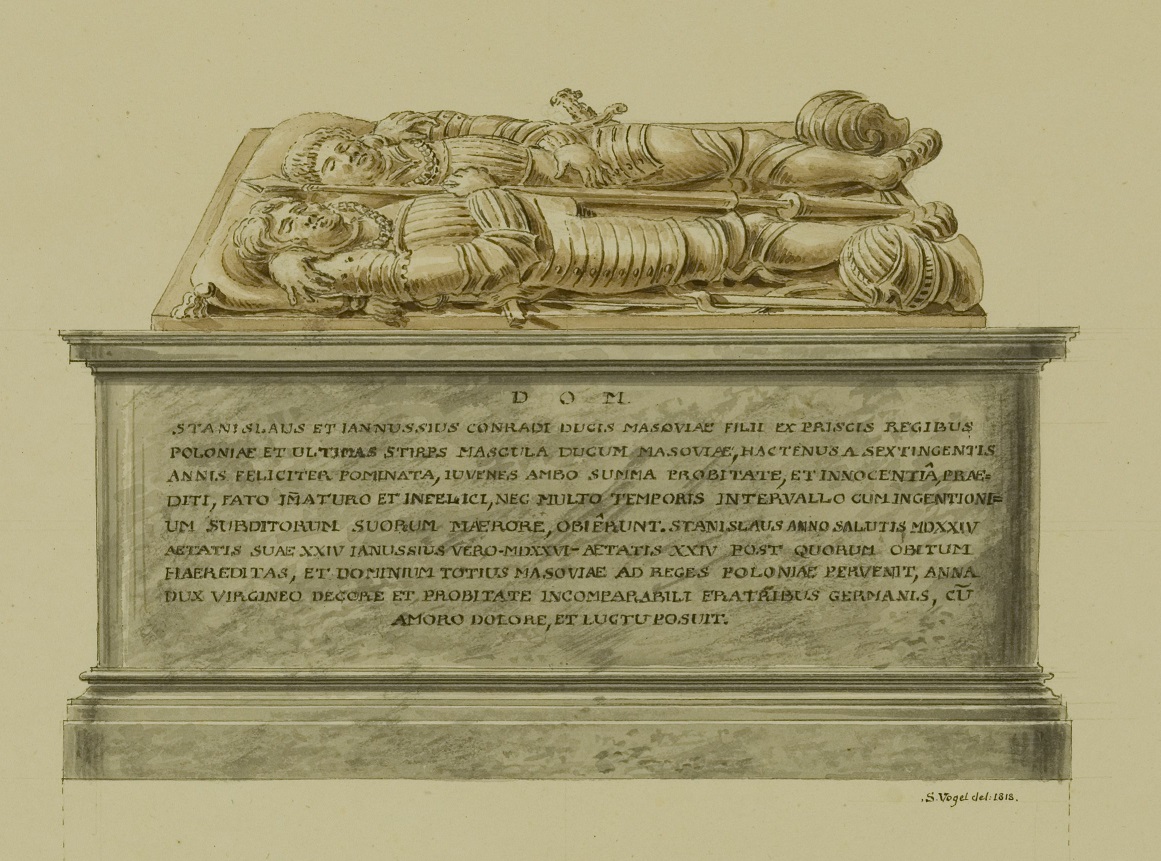 D O M
STANISLAUS ET IANNUSSIUS CONRADI DUCIS MASOVIAE FILII EX PRISCIS REGIBUS
POLONIAE ET ULTIMAS STIRPS MASCULA DUCUM MASOVIAE, HACTENUS A SEXTINGENTIS
ANNIS FELICITER POMINATA, IUVENES AMBO SUMMA PROBITATE, ET INNOCENTIÂ, PRAE=
DITI, FATO IM̃ATURO ET INFELICI, NEC MULTO TEMPORIS INTERVALLO CUM INGENTI ONI=
UM SUBDITORUM SUORUM MAERORE, OBIÊRUNT. STANISLAUS ANNO SALUTIS MDXXIV
AETATIS SUAE XXIV IANUSSIUS VERO-MDXXVI-AETATIS XXIV POST QUORUM OBITUM
HAEREDITAS, ET DOMINIUM TOTIUS MASOVIAE AD REGES POLONIAE PERVENIT, ANNA
DUX VIRGINEO DECORE ET PROBITATE INCOMPARABILI FRATRIBUS GERMANIS, CŪ
AMORO DOLORE, ET LUCTU POSUIT.
S. Vogel del: 1818.